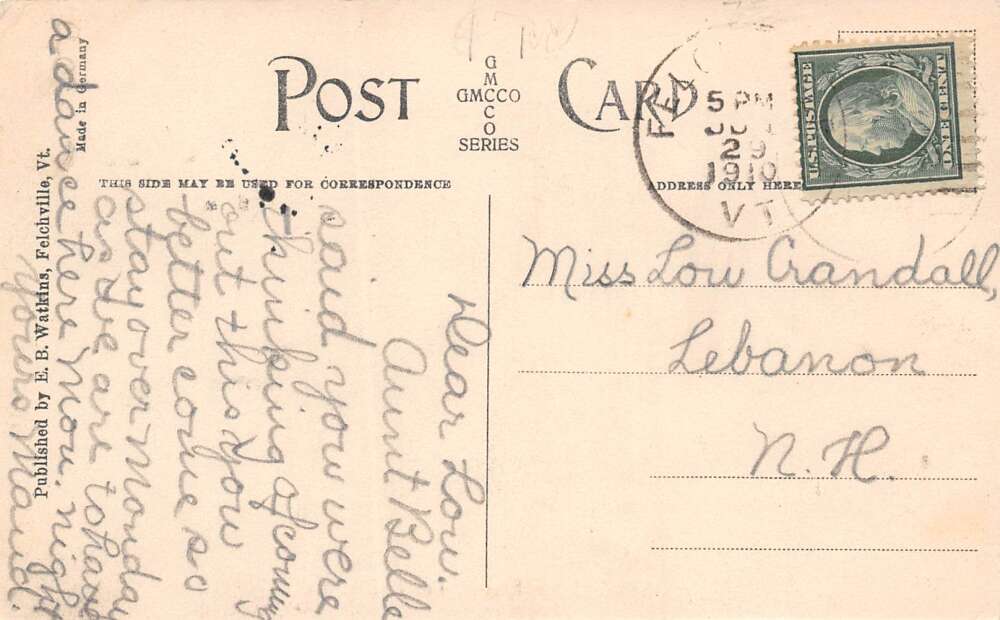 POST CARD
GMCCO
GMCCO
SERIES
THIS SIDE MAY BE USED FOR CORRESPONDENCE
ADDRESS ONLY HERE
5 PM
29
1910
VT
U.S. POSTAGE
ONE CENT
Miss Lou Crandall,
Lebanon
N. H.
Dear Lou.
Aunt Belle
said you were
thinking of coming
out this you
better come so
stay over Monday
as we are to have
a dance here Mon. night
yours Maud.
Published by E. B. Watkins, Felchville, Vt.
Made in Germany